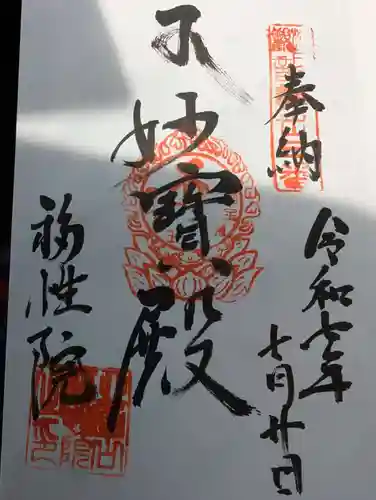 奉納
令和七年
七月廿日
不妙寶殿
福性院